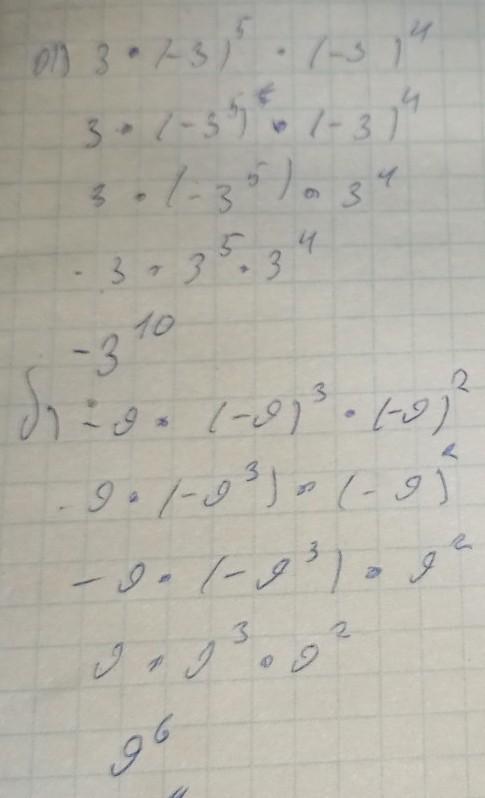 а) 3 · (-3)⁵ · (-3)⁴
3 · (-3⁵) · (-3)⁴
3 · (-3⁵) · 3⁴
- 3 · 3⁵ · 3⁴
-3¹⁰
б) -9 · (-9)³ · (-9)²
-9 · (-9³) · (-9)²
-9 · (-9³) · 9²
9 · 9³ · 9²
9⁶